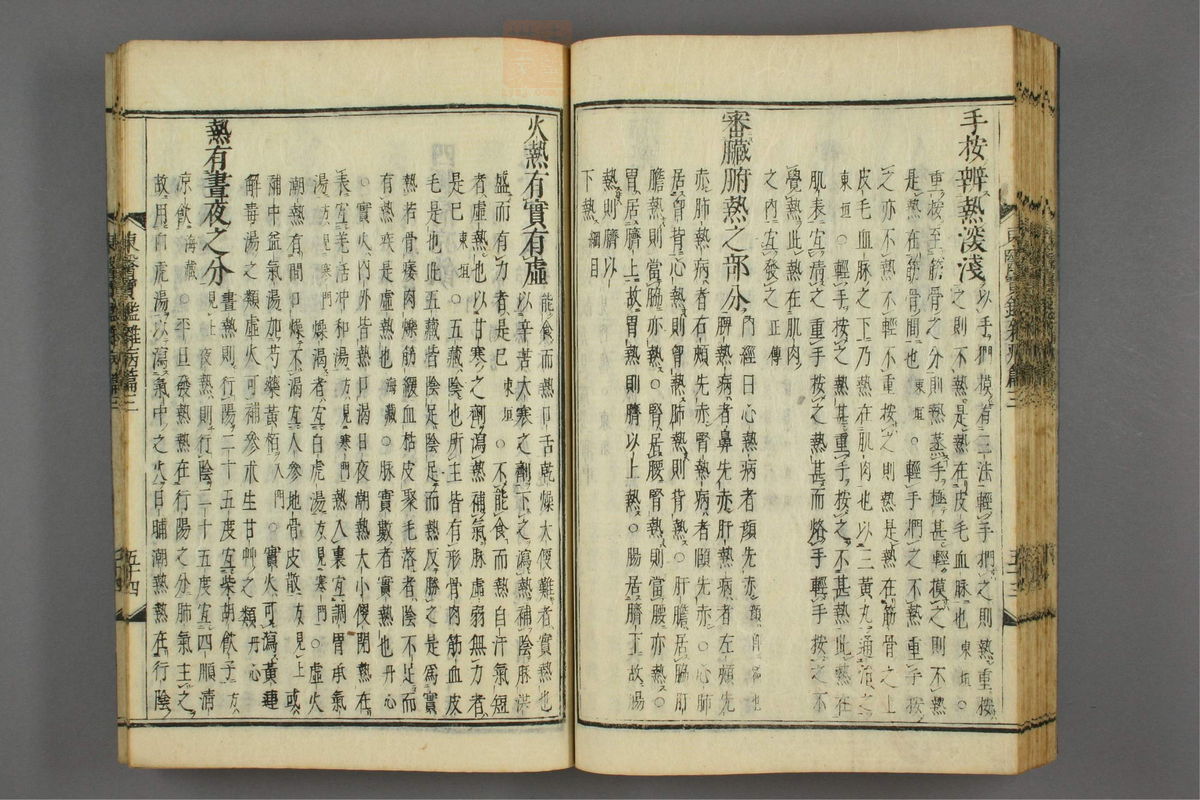 手按辨熱深淺
以手捫摸有三法輕手捫之則熱重按
之則不熱是熱在皮毛血脉也東垣○
重按至筋骨之分則熱蒸手極甚輕摸之則不熱
是熱在筋骨間也東垣○輕手捫之不熱重手按
之亦不熱不輕不重按之則熱是熱在筋骨之上
皮毛血脉之下乃熱在肌肉也以三黃丸通治之
東垣○輕手按之熱甚重手按之不甚熱此熱在
肌表宜清之重手按之熱甚而烙手輕手按之不
覺熱此熱在肌肉
之內宜發之正傳
審臟腑熱之部分
內經曰心熱病者顔先赤額也
脾熱病者鼻先赤肝熱病者左頰先
赤肺熱病者右頰先赤腎熱病者頤先赤○心肺
居胷背心熱則胷熱肺熱則背熱○肝膽居脇肝
膽熱則當脇亦熱○腎居腰腎熱則當腰亦熱○
胃居臍上故胃熱則臍以上熱○腸居臍下故腸
熱則臍以
下熱綱目
東醫寶鑑雜病篇三 五十三
火熱有實有虛
能食而熱口舌乾燥大便難者實熱也
以辛苦大寒之劑下之瀉熱補陰脉洪
盛而有力者是已東垣○不能食而熱自汗氣短
者虛熱也以甘寒之劑瀉熱補氣脉虛弱無力者
是已東垣○五藏陰也所主皆有形骨肉筋血皮
毛是也此五藏皆陰足陰足而熱反勝之是爲實
熱若骨痿肉爍筋緩血枯皮聚毛落者陰不足而
有熱疾是虛熱也海藏○脉實數者實熱也丹心
○實火內外皆熱口渴日夜潮熱大小便閉熱在
表宜羌活冲和湯方見寒門熱入裏宜調胃承氣
湯方見寒門燥渴者宜白虎湯方見寒門○虛火
潮熱有間口燥不渴宜人參地骨皮散方見上或
補中益氣湯加芍藥黃栢入門○實火可瀉黃連
解毒湯之類虛火可補參朮生甘艸之類丹心
熱有晝夜之分
晝熱則行陽二十五度宜柴胡飮子方
見上夜熱則行陰二十五度宜四順清
凉飮海藏○平旦發熱熱在行陽之分肺氣主之
故用白虎湯以瀉氣中之火日晡潮熱熱在行陰
東醫寶鑑雜病篇三 五十四